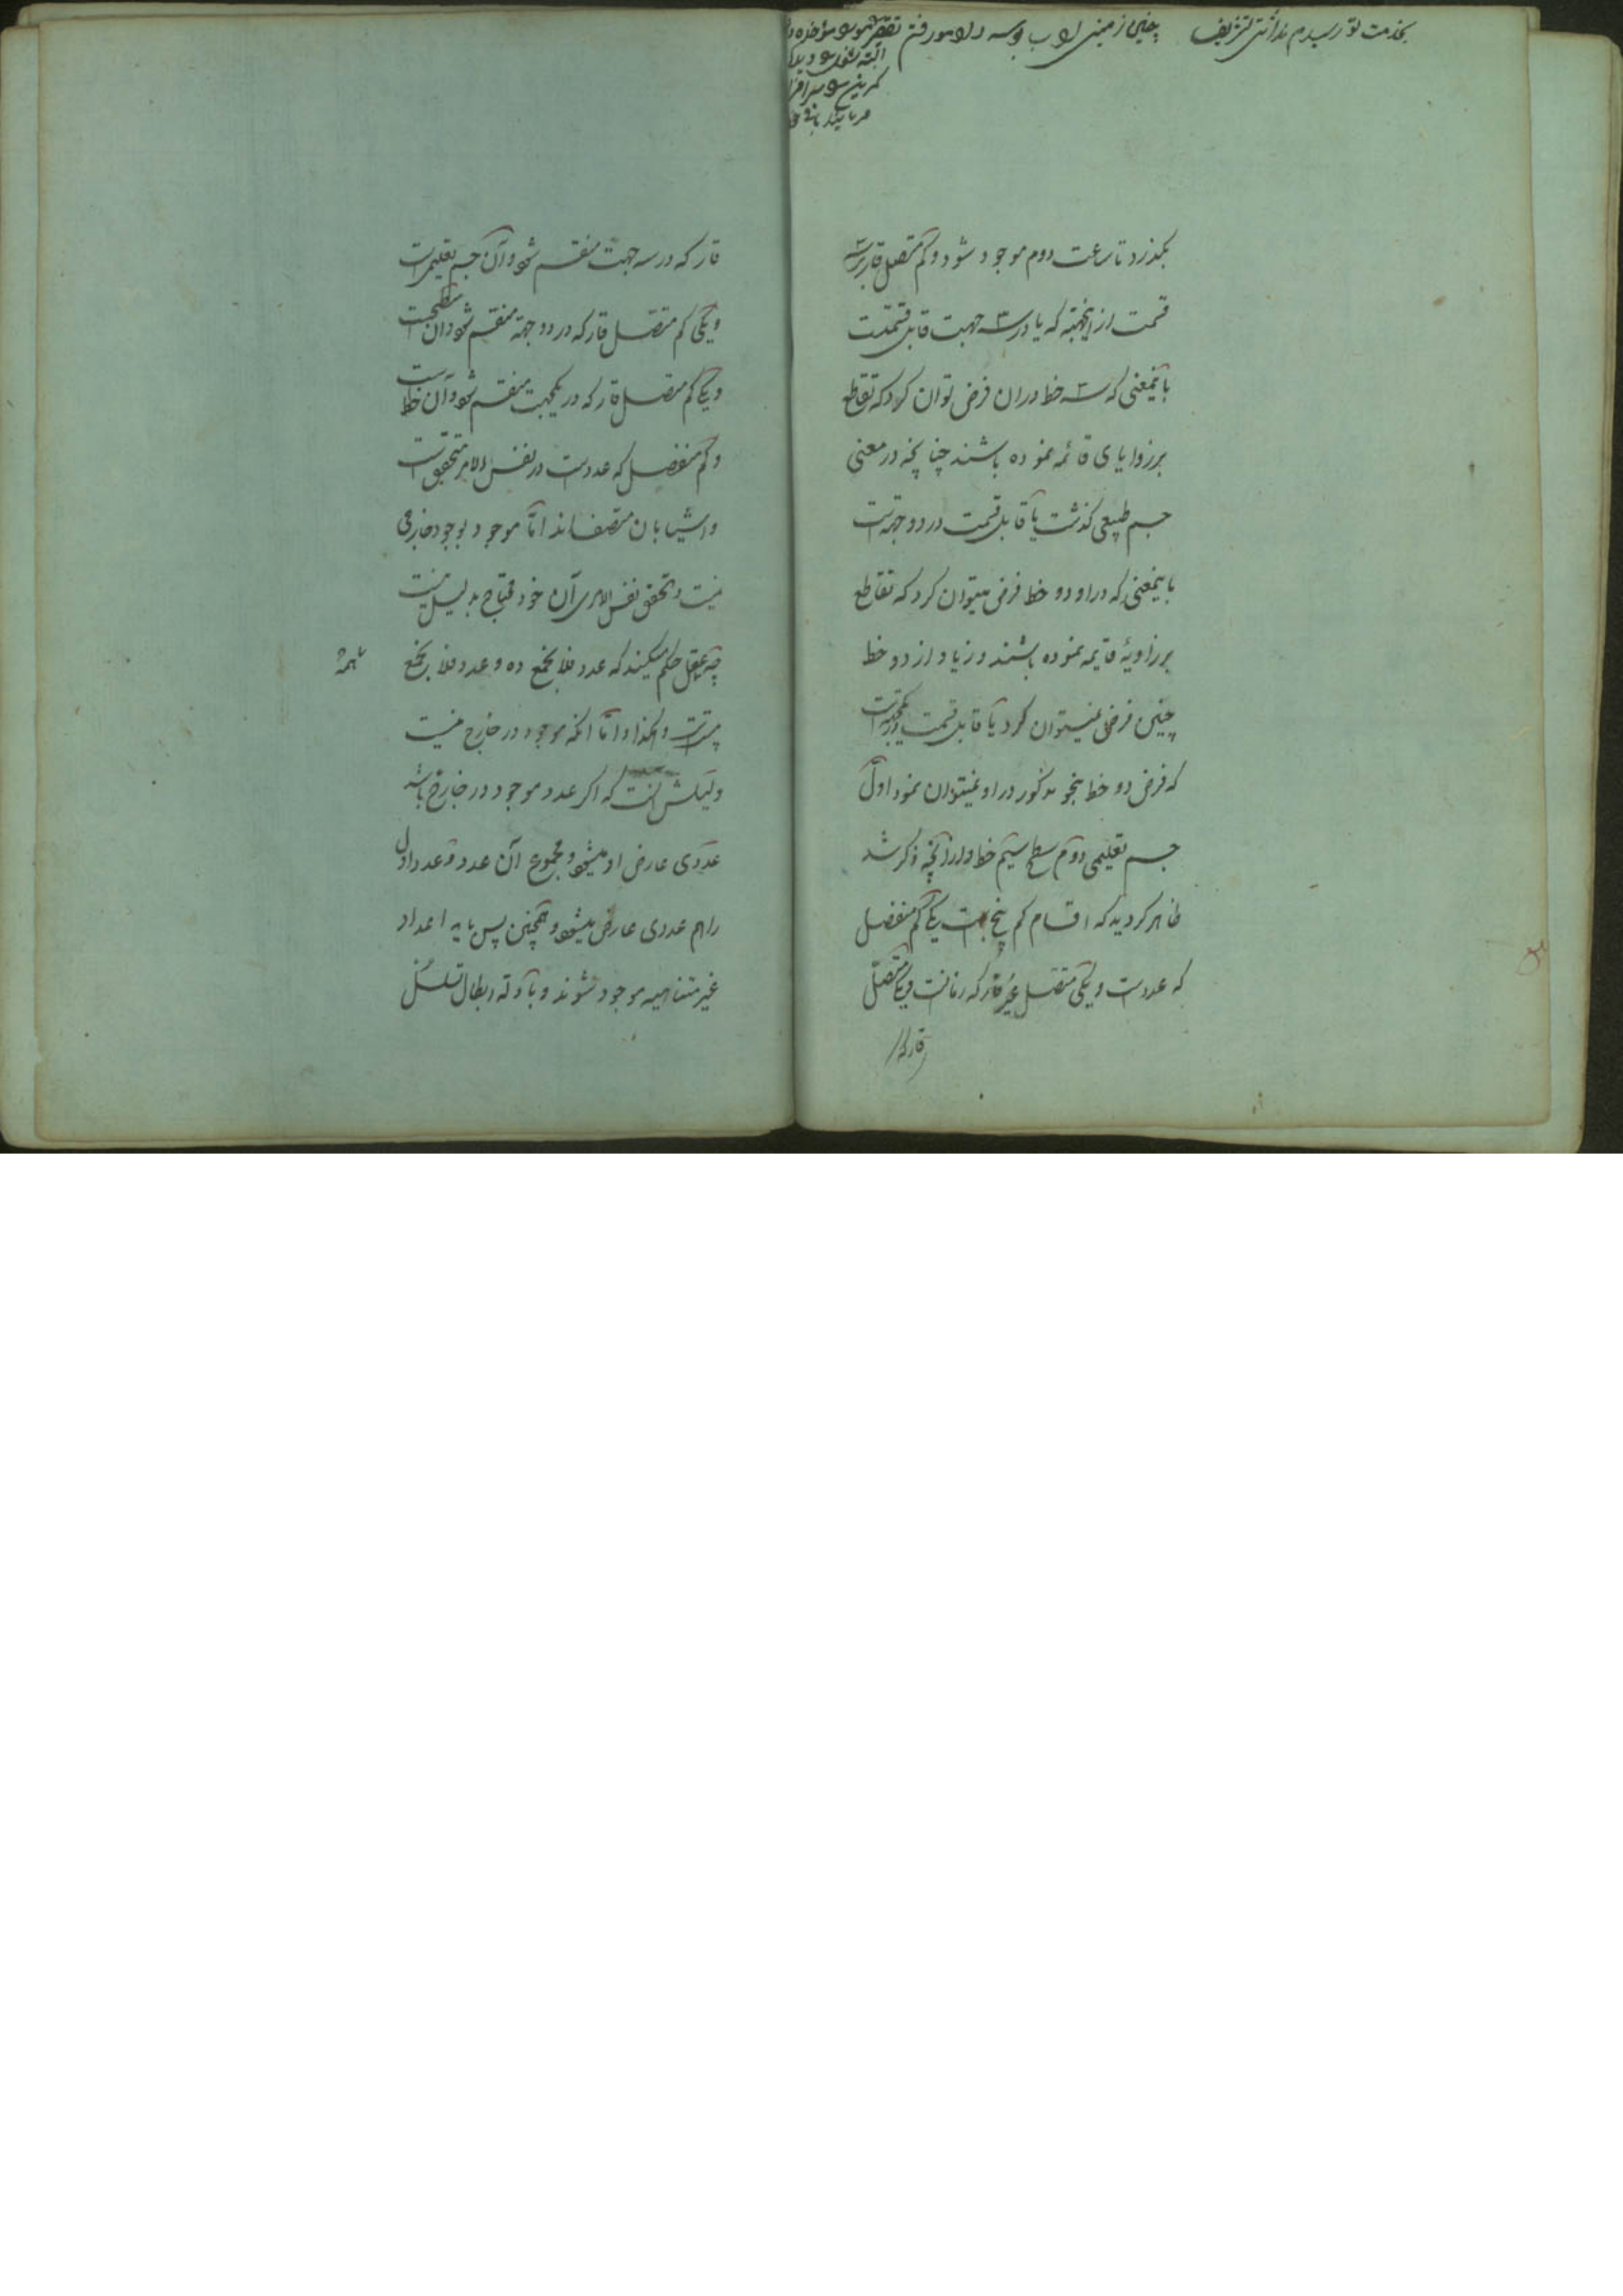 بخدمت تو رسیدم
بگذرد تا ساعت دوم موجود شود و کم متصل قار بر سه
قسمت از اینجهته که یا در سه جهت قابل قسمتست
باینمعنی که سه خط دران فرض توان کرد که تقاطع
برزوایای قائمه نموده باشند چنانچه در معنی
جسم طبیعی گذشت یا قابل قسمت در دو جهة است
باینمعنی که در او دو خط فرض میتوان کرد که تقاطع
برزاویهٔ قایمه نموده باشند و زیاد از دو خط
چنین فرض نمیتوان کرد یا قابل قسمت در یکجهة است
که فرض دو خط بنحو مذکور در او نمیتوان نمود اول
جسم تعلیمی دوم سطح سیم خط و ازانچه ذکر شد
ظاهر کردید که اقسام کم پنج است یکی کم منفصل
که عددست و یکی متصل غیر قار که زمانست و یکی متصل
قار که
قار که در سه جهت منقسم شود و آن جسم تعلیمی است
و یکی کم متصل قار که در دو جهة منقسم شود و آن سطحست
و یکی کم متصل قار که در یکجهت منقسم شود و آن خط است
و کم منفصل که عددست در نفس الامر متحقق است
و اشیا بان متصف اند اما موجود بوجود خارجی
نیست و تحقق نفس الامری آن خود محتاج بدلیل نیست
چه عقل حکم میکند که عدد فلان جمع ده و عدد فلان جمع
بیست است و هکذا و اما انکه موجود در خارج نیست
دلیلش آنست که اکر عدد موجود در خارج باشد
عددی عارض او میشود و مجموع آن عدد و عدد اول
را هم عددی عارض میشود و همچنین پس باید اعداد
غیر متناهیه موجود شوند و بادله ابطال تسلسل